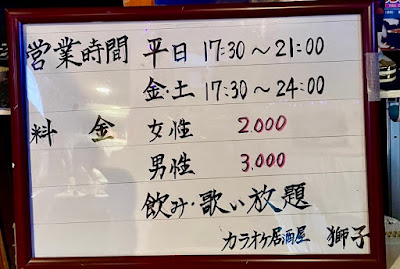 営業時間 平日 17:30～21:00
金・土 17:30～24:00
料金 女性 2.000
男性 3.000
飲み・歌い放題
カラオケ居酒屋 獅子